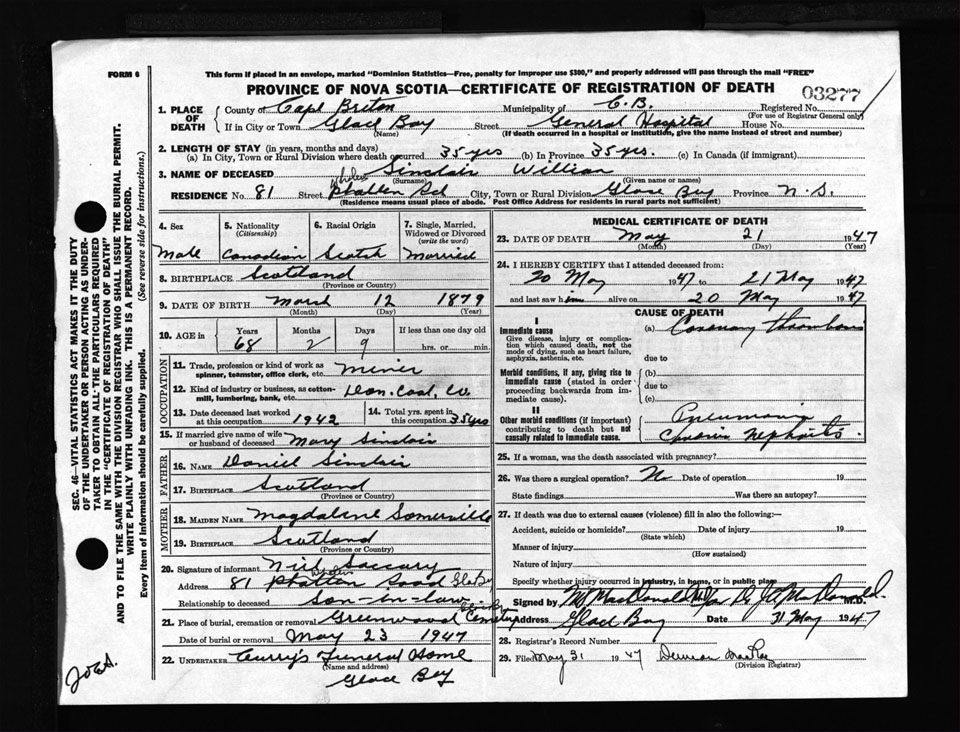 FORM 6
This form if placed in an envelope, marked "Dominion Statistics—Free, penalty for improper use $300," and properly addressed will pass through the mail "FREE"
PROVINCE OF NOVA SCOTIA—CERTIFICATE OF REGISTRATION OF DEATH
03277
1. PLACE OF DEATH
County of Cape Briton Municipality of C.B. Registered No.
(For use of Registrar General only)
If in City or Town Glace Bay Street General Hospital House No.
(Name) (If death occurred in a hospital or institution, give the name instead of street and number)
2. LENGTH OF STAY (in years, months and days)
(a) In City, Town or Rural Division where death occurred 35 yrs (b) In Province 35 yrs. (c) In Canada (if immigrant)
3. NAME OF DECEASED Sinclair William
(Surname) (Given name or names)
RESIDENCE No. 81 Street Phalen Rd City, Town or Rural Division Glace Bay Province N.S.
(Residence means usual place of abode. Post Office Address for residents in rural parts not sufficient)
4. Sex
Male
5. Nationality
(Citizenship)
Canadian
6. Racial Origin
Scotch
7. Single, Married, Widowed or Divorced
(write the word)
Married
8. BIRTHPLACE Scotland
(Province or Country)
9. DATE OF BIRTH March 12 1879
(Month) (Day) (Year)
10. AGE in
Years Months Days If less than one day old
68 2 9 hrs. or min.
OCCUPATION
11. Trade, profession or kind of work as spinner, teamster, office clerk, etc. Miner
12. Kind of industry or business, as cotton-mill, lumbering, bank, etc. Dom. Coal, Co.
13. Date deceased last worked at this occupation 1942
14. Total yrs. spent in this occupation 35 yrs
15. If married give name of wife or husband of deceased Mary Sinclair
FATHER
16. NAME Daniel Sinclair
17. BIRTHPLACE Scotland
(Province or Country)
MOTHER
18. MAIDEN NAME Magdalene Somerville
19. BIRTHPLACE Scotland
(Province or Country)
20. Signature of informant
Address 81 Phalen Road Glace Bay
Relationship to deceased Son-in-law
21. Place of burial, cremation or removal Greenwood Cemetery
Date of burial or removal May 23 1947
22. UNDERTAKER Curry's Funeral Home
(Name and address)
Glace Bay
MEDICAL CERTIFICATE OF DEATH
23. DATE OF DEATH May 21 1947
(Month) (Day) (Year)
24. I HEREBY CERTIFY that I attended deceased from:
20 May 1947 to 21 May 1947
and last saw him alive on 20 May 1947
CAUSE OF DEATH
I
Immediate cause
Give disease, injury or complication which caused death, not the mode of dying, such as heart failure, asphyxia, asthenia, etc.
(a) Coronary thrombosis
due to
Morbid conditions, if any, giving rise to immediate cause (stated in order proceeding backwards from immediate cause).
(b)
due to
(c)
II
Other morbid conditions (if important) contributing to death but not causally related to immediate cause.
Pneumonia
Chronic Nephritis
25. If a woman, was the death associated with pregnancy?
26. Was there a surgical operation? No Date of operation 19
State findings Was there an autopsy?
27. If death was due to external causes (violence) fill in also the following:—
Accident, suicide or homicide? Date of injury 19
(State which)
Manner of injury
(How sustained)
Nature of injury
Specify whether injury occurred in industry, in home, or in public place
Signed by M MacDonald for Dr. MacDonald M.D.
Address Glace Bay Date 31 May 1947
28. Registrar's Record Number
29. Filed May 31 1947
(Division Registrar)
SEC. 46—VITAL STATISTICS ACT MAKES IT THE DUTY
OF THE UNDERTAKER OR PERSON ACTING AS UNDER-
TAKER TO OBTAIN ALL THE PARTICULARS REQUIRED
IN THE "CERTIFICATE OF REGISTRATION OF DEATH"
AND TO FILE THE SAME WITH THE DIVISION REGISTRAR WHO SHALL ISSUE THE BURIAL PERMIT.
WRITE PLAINLY WITH UNFADING INK. THIS IS A PERMANENT RECORD.
Every item of information should be carefully supplied. (See reverse side for instructions.)